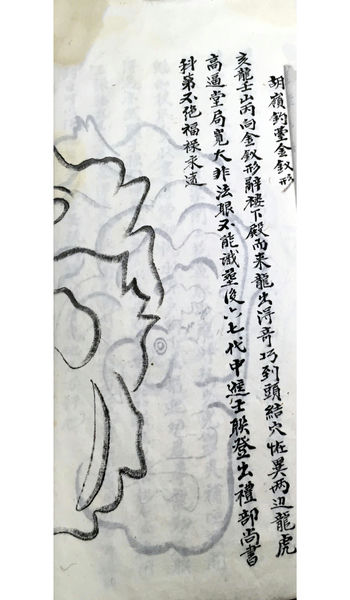 胡嶺釣墨金釵形
亥龍壬山丙向金釵形辭樓下殿而來龍出得奇巧到頭結穴怪異两边龍虎
高逼堂局寬大非法眼不能識塟後六七代中進士联登出禮部尚書
科第不绝福禄永遠